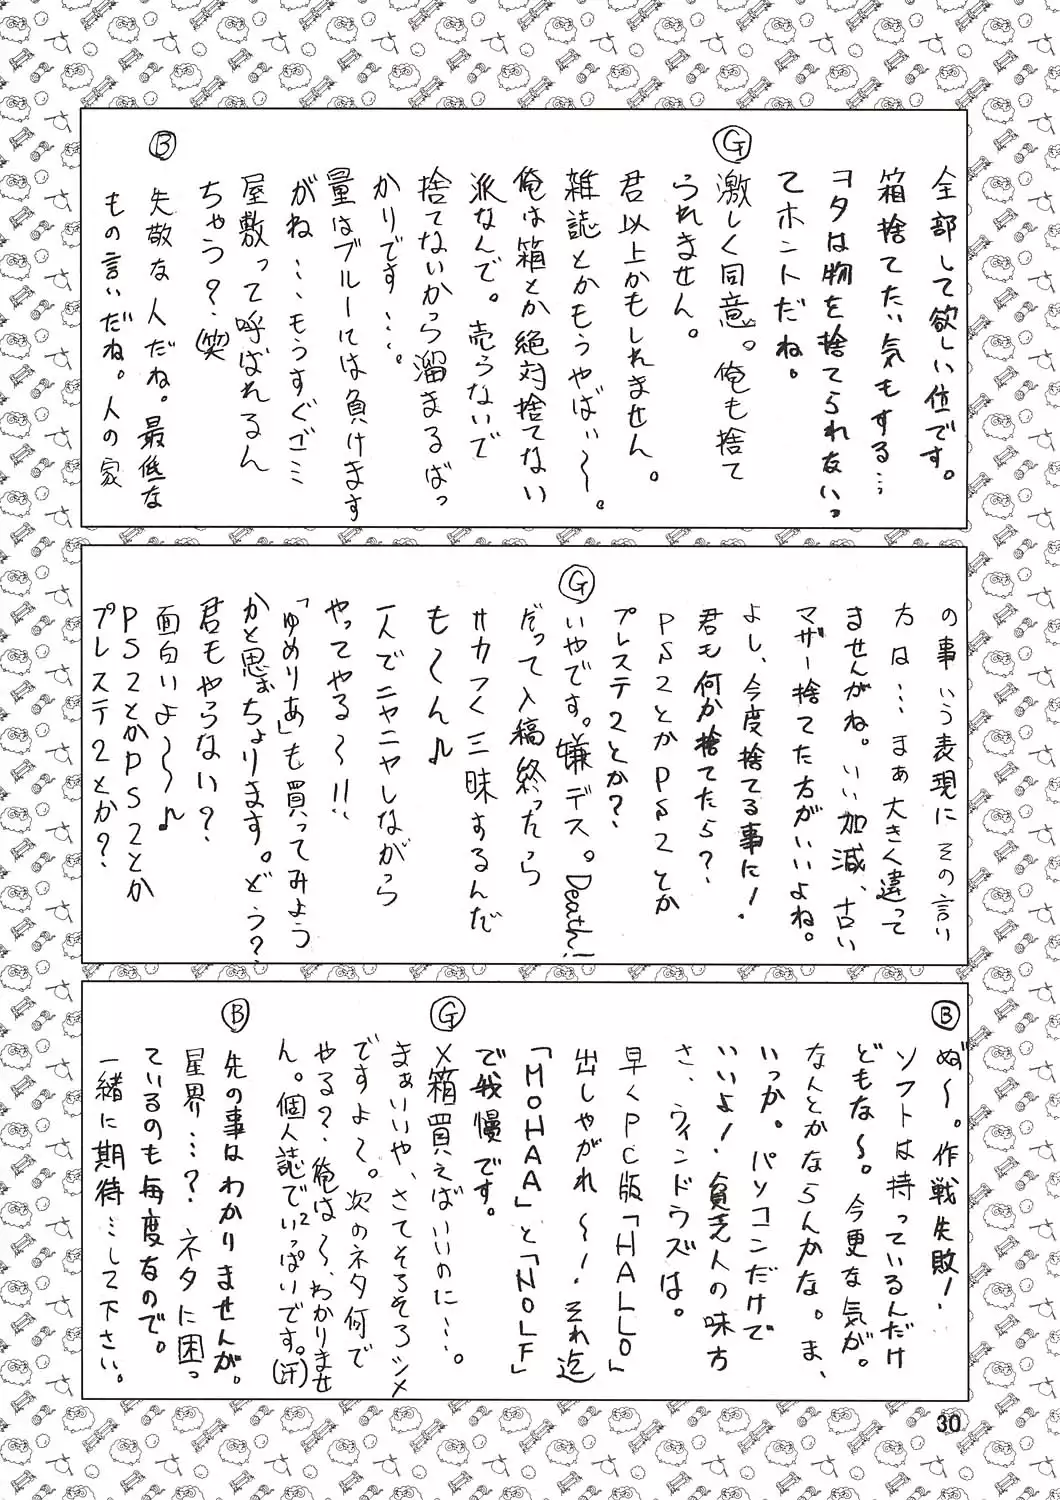 全部して欲しい位です。
箱捨てたい気もする…
ヲタは物を捨てられないっ
てホントだね。
Ⓖ
激しく同意。俺も捨て
られません。
君以上かもしれません。
雑誌とかもうやばい〜。
俺は箱とか絶対捨てない
派なんで。売らないで
捨てないから溜まるばっ
かりです…。
量はブルーには負けます
がね…もうすぐゴミ
屋敷って呼ばれるん
ちゃう？(笑)
Ⓑ
失敬な人だね。最低な
もの言いだね。人の家
の事いう表現にその言い
方は…まぁ大きく違って
ませんがね。いい加減、古い
マザー捨てた方がいいよね。
よし、今度捨てる事に！
君も何か捨てたら？
PS2とかPS2とか
プレステ2とか？
Ⓖ
いやです。嫌デス。Death!
だって入稿終ったら
サカつく三昧するんだ
も〜ん♪
一人でニヤニヤしながら
やってやる〜!!
「ゆめりあ」も買ってみよう
かと思おちょります。どう？
君もやらない？
面白いよ〜〜♪
PS2とかPS2とか
プレステ2とか？
Ⓑ
ぬ゛〜。作戦失敗！
ソフトは持っているんだけ
どもな〜。今更な気が。
なんとかならんかな。ま、
いっか。パソコンだけで
いいよ！貧乏人の味方
さ、ウィンドウズは。
早くPC版「HALLO」
出しやがれ〜！それ迄
「MOHAA」と「NOLF」
で我慢です。
Ⓖ
×箱買えばいいのに…。
まぁいいや、さてそろそろシメ
ですよ〜。次のネタ何で
やる？俺は〜、わかりませ
ん。個人誌でいっぱいです。(汗)
Ⓑ
先の事はわかりませんが。
星界…？ネタに困っ
ているのも毎度なので。
一緒に期待…して下さい。
30